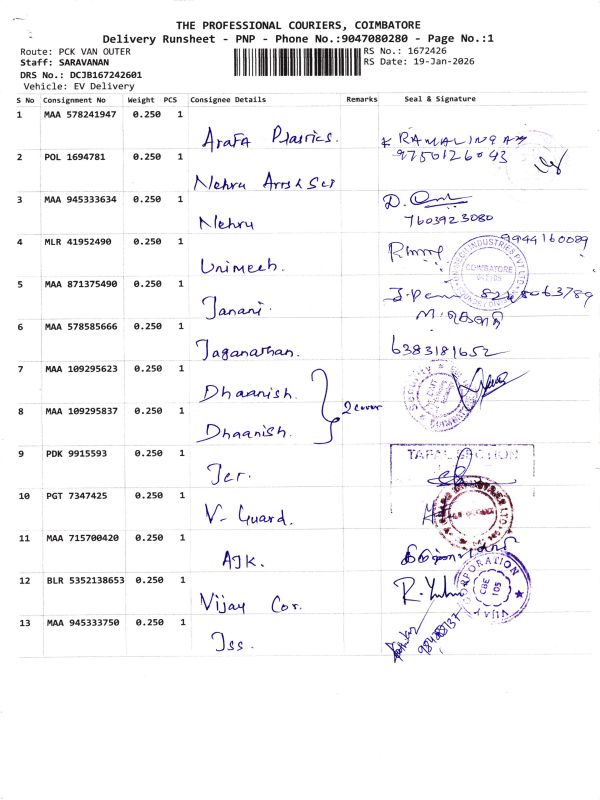 THE PROFESSIONAL COURIERS, COIMBATORE
Delivery Runsheet - PNP - Phone No.:9047080280 - Page No.:1
Route: PCK VAN OUTER RS No.: 1672426
Staff: SARAVANAN RS Date: 19-Jan-2026
DRS No.: DCJB167242601
Vehicle: EV Delivery
S No Consignment No Weight PCS Consignee Details Remarks Seal & Signature
1 MAA 578241947 0.250 1 Arafa Plastics. RAMALINGAM
9750126043
2 POL 1694781 0.250 1 Nehru Arts & Sci
3 MAA 945333634 0.250 1 Nehru D.
7603923080
4 MLR 41952490 0.250 1 Unimech. 9944160089
COIMBATORE
5 MAA 871375490 0.250 1 Janani.
6 MAA 578585666 0.250 1 Jaganathan. 6383181652
7 MAA 109295623 0.250 1 Dhaanish.
2 cover
8 MAA 109295837 0.250 1 Dhaanish.
9 PDK 9915593 0.250 1 Jer. TAPAL SECTION
10 PGT 7347425 0.250 1 V-Guard.
11 MAA 715700420 0.250 1 AJK.
12 BLR 5352138653 0.250 1 Vijay Cor. R.
CORPORATION
CBE
105
VIJAY
13 MAA 945333750 0.250 1 Jss.